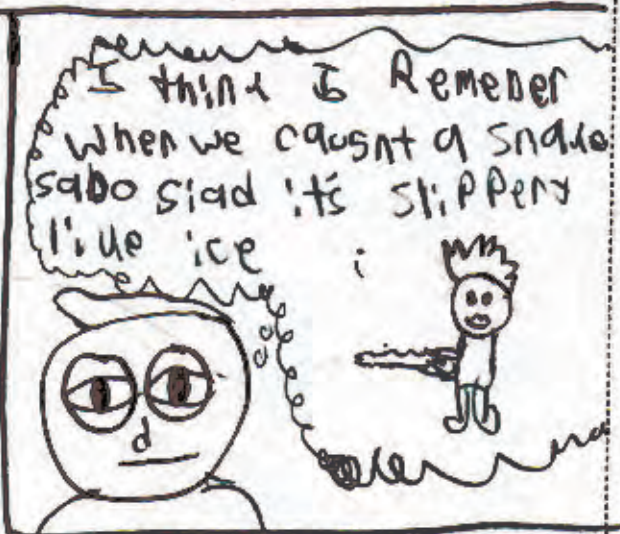 I think I Remeber
when we caugnt a snake
sabo siad it's slippery
like ice